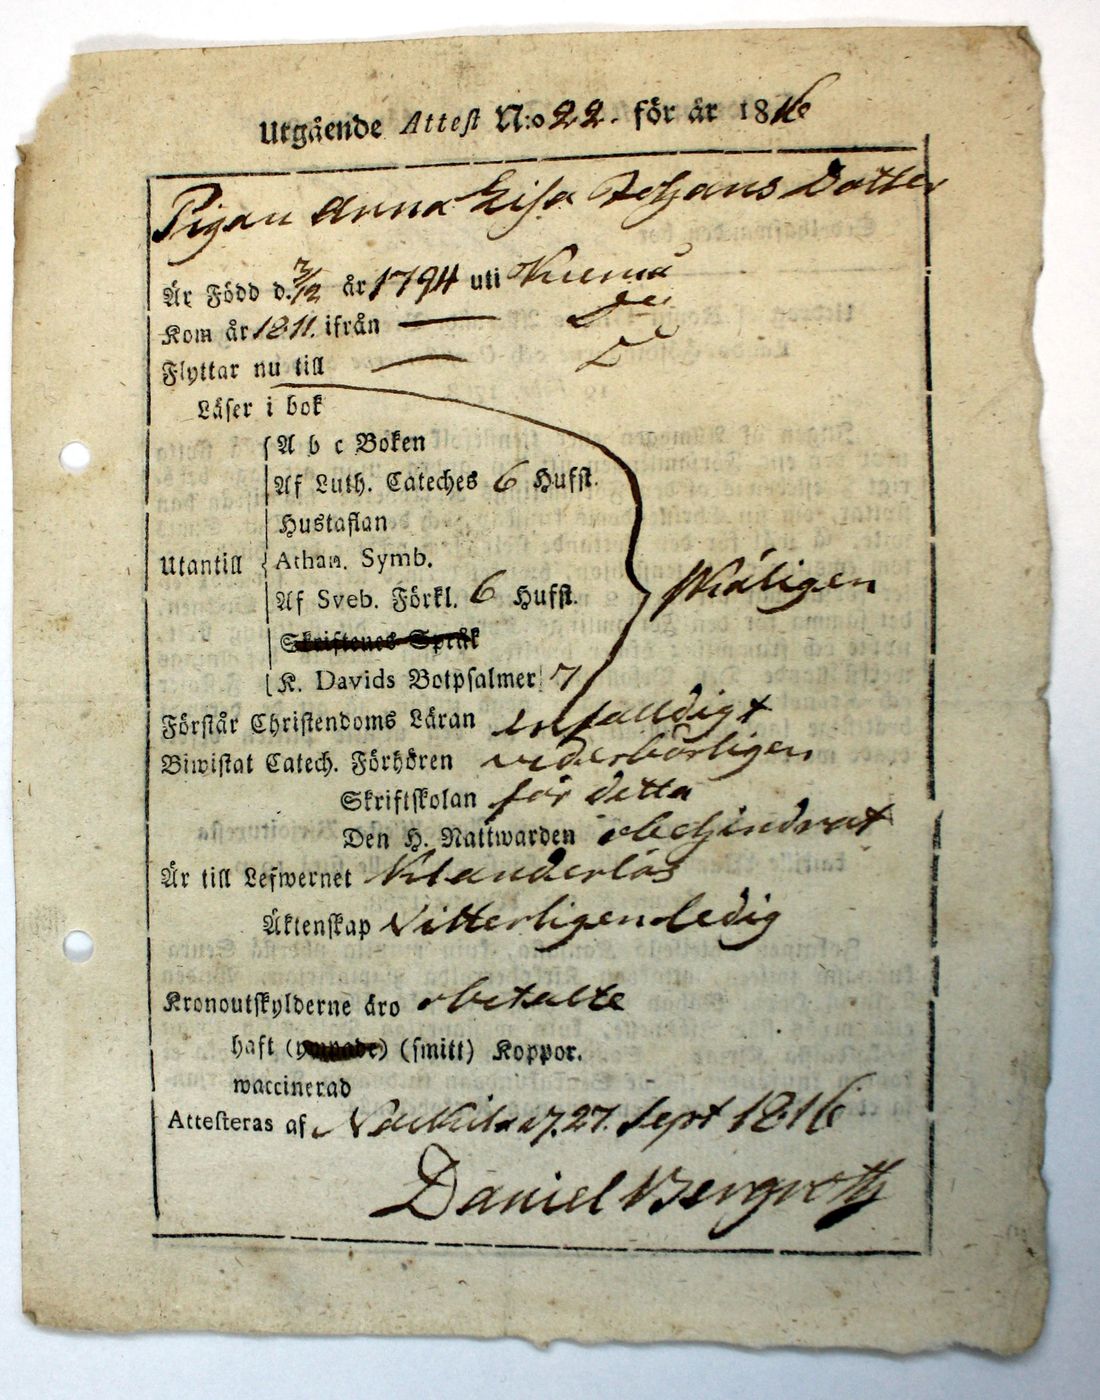 Utgående Attest N:o 22. för år 1816
Pigan Anna Lisa Johans Dotter
Är Född d. 3/12 år 1794 uti Kumå
Kom år 1811. ifrån —
Flyttar nu till —
Läser i bok
A b c Boken
Af Luth. Cateches 6 Hufst.
Hustaflan
Utantill Athan. Symb. skäligen
Af Sveb. Förkl. 6 Hufst.
Skriftenes Språk
K. Davids Botpsalmer 7
Förstår Christendoms Läran enfaldigt
Biwistat Catech. Förhören vederbörligen
Skriftskolan för detta
Den H. Nattwarden obehindrat
Är till Lefwernet Klanderlös
Äktenskap Vitterligen ledig
Kronoutskylderne äro obetalte
haft (ympade) (smitt) Koppor.
waccinerad
Attesteras af d. 27. Sept 1816
Daniel Bergroth